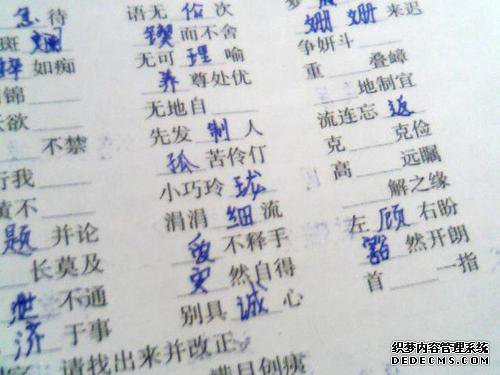 急 待 语无 伦 次
斑 斓 锲 而不舍 姗 姗 来迟
如痴 无可 理 喻 争妍斗____
锦____ 养 尊处优 重____叠嶂
欲____ 无地自____ ____地制宜
____不禁 先发 制 人 流连忘 返
行我____ 孤 苦伶仃 克____克俭
不____ 小巧玲 珑 高____远瞩
题 并论 涓涓 细 流 ____解之缘
____长莫及 爱 不释手 左 顾 右盼
泄 不通 然自得 豁 然开朗
济 于事 别具 诚 心 首____一指
请找出来并改正
满目创痍
织梦内容管理系统
DEDECMS.COM